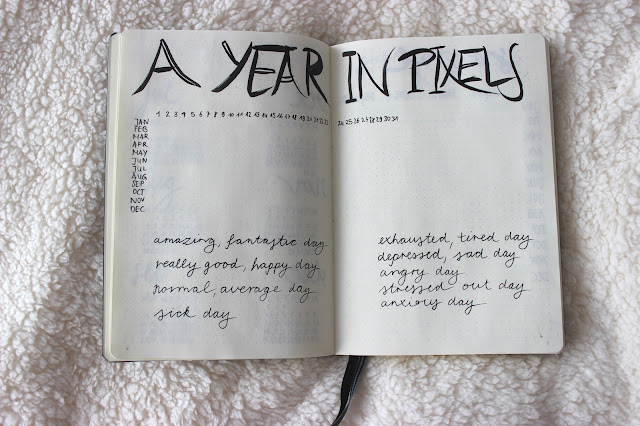 A YEAR IN PIXELS
1 2 3 4 5 6 7 8 9 10 11 12 13 14 15 16 17 18 19 20 21 22 23 24 25 26 27 28 29 30 31
JAN
FEB
MAR
APR
MAY
JUN
JUL
AUG
SEP
OCT
NOV
DEC
amazing, fantastic day
really good, happy day
normal, average day
sick day
exhausted, tired day
depressed, sad day
angry day
stressed out day
anxious day